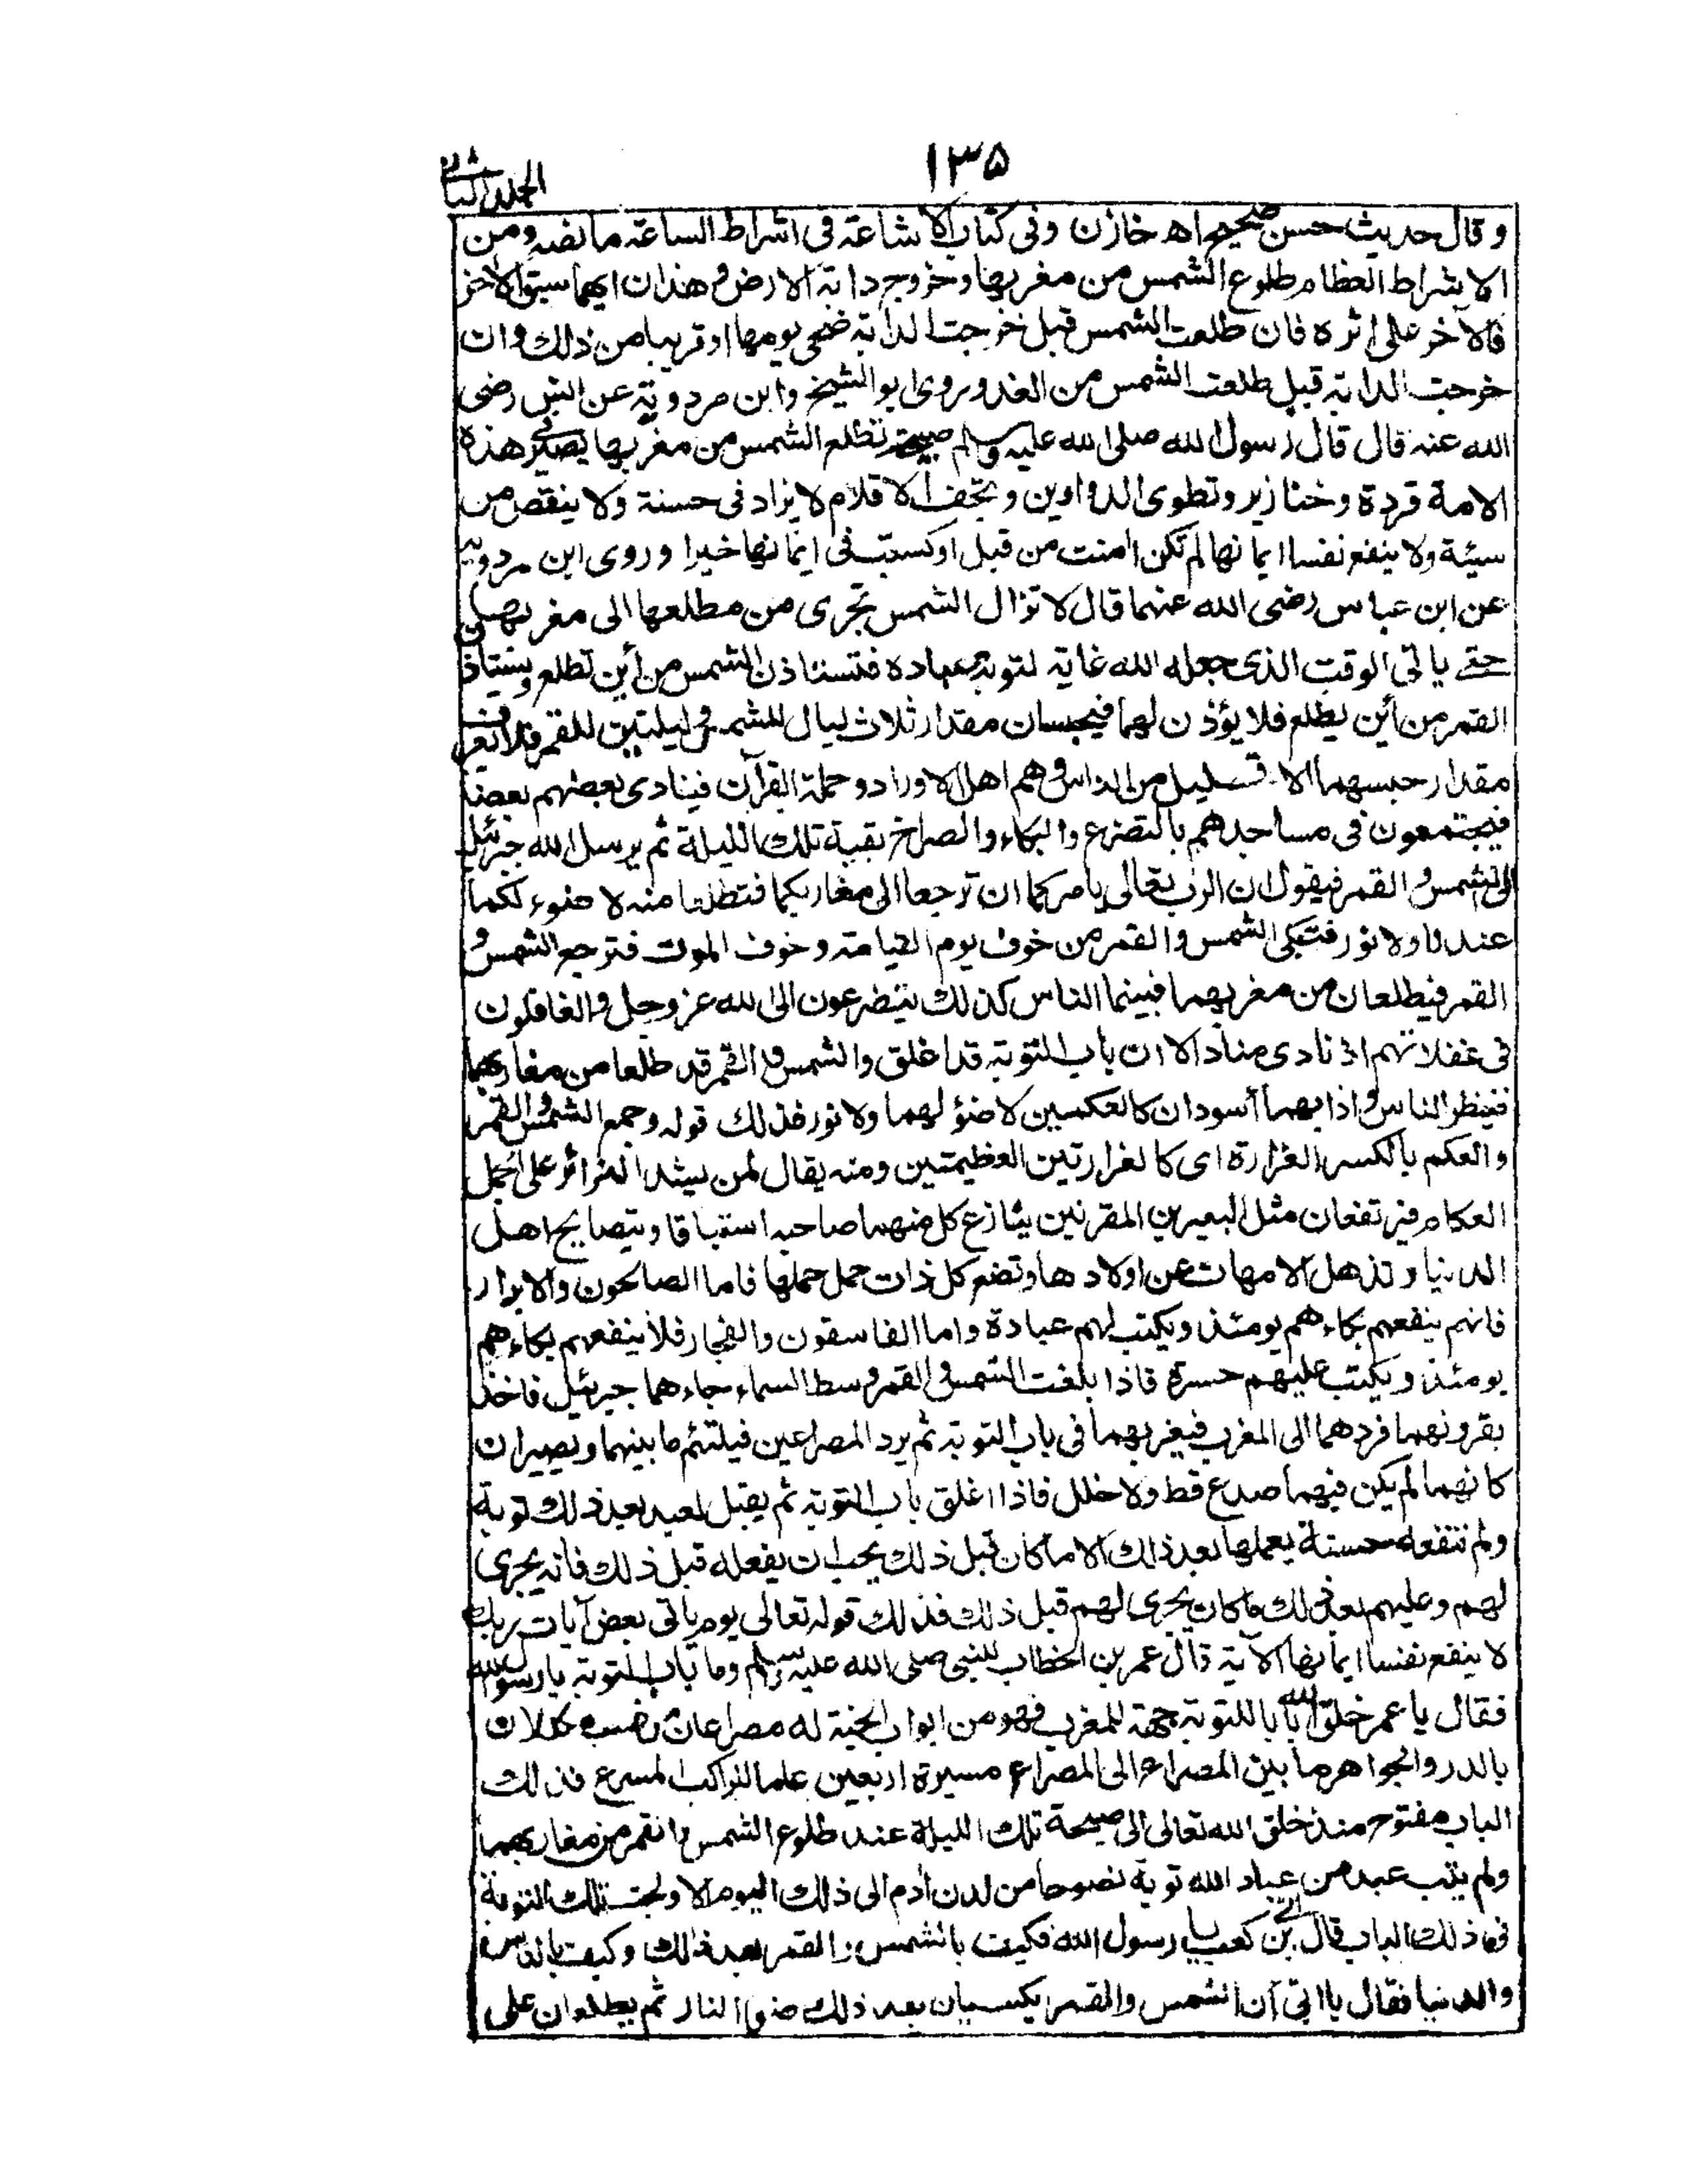 ١٣٥
الجلد الثانى
و قال حديث حسن صحيح اه خازن وفى كتاب الاشاعة فى اشراط الساعة ما نصه ومن
الاشراط العظام طلوع الشمس من مغربها وخروج دابة الارض وهذان ايهما سبق الاخر
فالآخر على اثره فان طلعت الشمس قبل خرجت الدابة ضحى يومها او قريبا من ذلك وان
خرجت الدابة قبل طلعت الشمس من الغد وروى ابو الشيخ وابن مردوية عن انس رضى
الله عنه قال قال رسول الله صلى الله عليه وسلم صبيحة تطلع الشمس من مغربها يصير فى هذه
الامة قردة وخنازير وتطوى الدواوين وتجف الاقلام لا يزاد فى حسنة ولا ينقص من
سيئة ولا ينفع نفسا ايمانها لم تكن امنت من قبل او كسبت فى ايمانها خيرا وروى ابن مردويه
عن ابن عباس رضى الله عنهما قال لا تزال الشمس تجرى من مطلعها الى مغربها
حتے ياتى الوقت الذى جعله الله غاية لتوبة عباده فتستاذن الشمس من أين تطلع ويستاذن
القمر من أين يطلع فلا يؤذن لهما فيحبسان مقدار ثلاث ليال للشمس وليلتين للقمر فلا يعرف
مقدار حبسهما الا قليل من الناس وهم اهل الاوراد وحملة القرآن فينادى بعضهم بعضا
فيجتمعون فى مساجدهم بالتضرع والبكاء والصراخ بقية تلك الليلة ثم يرسل الله جبرئيل
الى الشمس والقمر فيقول ان الرب تعالى يامركما ان ترجعا الى مغاربكما فتطلعا منه لا ضوء لكما
عندنا ولا نور فتبكى الشمس والقمر من خوف يوم القيامة وخوف الموت فترجع الشمس و
القمر فيطلعان من مغربهما فبينما الناس كذلك يتضرعون الى الله عز وجل والغافلون
فى غفلاتهم اذ نادى مناد الا ان باب التوبة قد اغلق والشمس والقمر قد طلعا من مغاربهما
فينظر الناس واذا بهما أسودان كالعكمين لا ضؤ لهما ولا نور فذلك قوله وجمع الشمس والقمر
والعكم بالكسر الغرارة اى كالغرارتين العظيمتين ومنه يقال لمن يشد الغرائر على الجمل
العكام فيرتفعان مثل البعيرين المقرنين ينازع كل منهما صاحبه استباقا ويتصايح اهل
الدنيا وتذهل الامهات عن اولادها وتضع كل ذات حمل حملها فاما الصالحون والابرار
فانهم ينفعهم بكاءهم يومئذ ويكتب لهم عبادة واما الفاسقون والفجار فلا ينفعهم بكاءهم
يومئذ ويكتب عليهم حسرة فاذا بلغت الشمس والقمر وسط السماء جاءهما جبرئيل فاخذ
بقرونهما فردهما الى المغرب فيغربهما فى باب التوبة ثم يرد المصراعين فيلتئم ما بينهما ويصيران
كانهما لم يكن فيهما صدع قط ولا خلل فاذا اغلق باب التوبة ثم يقبل لعبد بعد ذلك توبة
ولم تنفعه حسنة يعملها بعد ذلك الا ما كان قبل ذلك يحب ان يفعله قبل ذلك فانه يجرى
لهم وعليهم بعد ذلك ما كان يجرى لهم قبل ذلك فذلك قوله تعالى يوم ياتى بعض آيات ربك
لا ينفع نفسا ايمانها الآية قال عمر بن الخطاب للنبى صلى الله عليه وسلم وما باب التوبة يا رسول الله
فقال يا عمر خلق الله بابا للتوبة جهة المغرب فهو من ابواب الجنة له مصراعان من ذهب مكللان
بالدر والجواهر ما بين المصراع الى المصراع مسيرة اربعين عاما للراكب المسرع فذلك
الباب مفتوح منذ خلق الله تعالى الى صبيحة تلك الليلة عند طلوع الشمس والقمر من مغاربهما
ولم يتب عبد من عباد الله توبة نصوحا من لدن أدم الى ذلك اليوم الا ولجت تلك التوبة
فى ذلك الباب قال ابى بن كعب يا رسول الله فكيف بالشمس والقمر بعد ذلك وكيف بالناس
والدنيا فقال يا ابى أن الشمس والقمر يكسيان بعد ذلك ضوء النار ثم يطلعان على